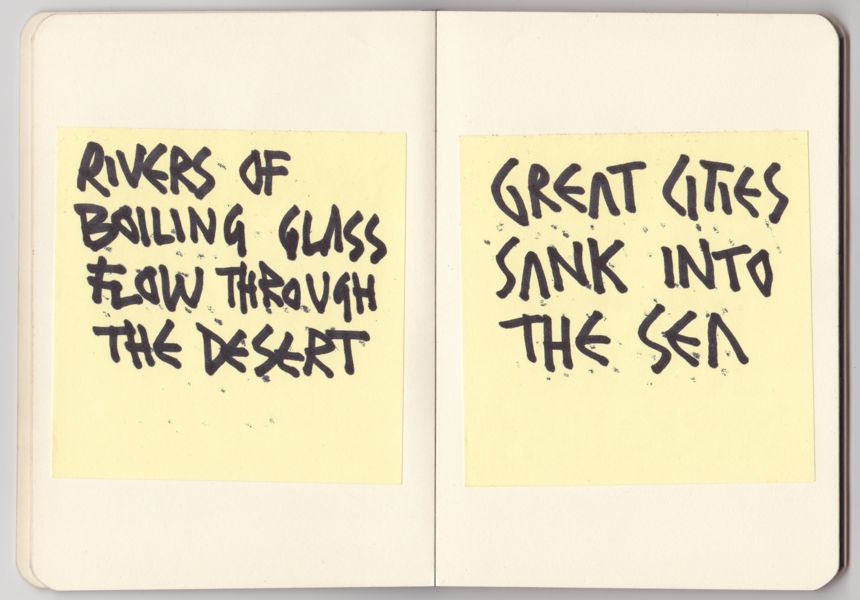 RIVERS OF
BOILING GLASS
FLOW THROUGH
THE DESERT
GREAT CITIES
SANK INTO
THE SEA